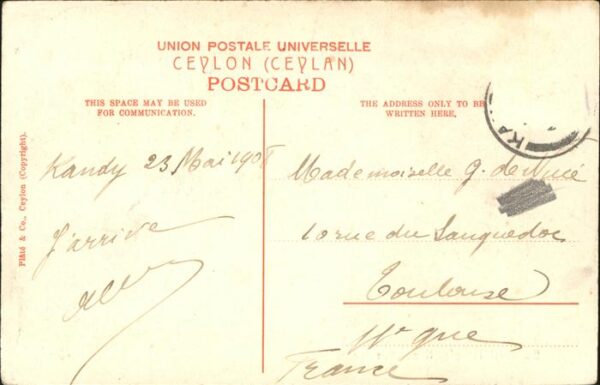 UNION POSTALE UNIVERSELLE
CEYLON (CEYLAN)
POSTCARD
THIS SPACE MAY BE USED
FOR COMMUNICATION.
THE ADDRESS ONLY TO BE
WRITTEN HERE.
KA
Plâté & Co., Ceylon (Copyright).
Kandy 23 Mai 1908
J'arrive
Mademoiselle G. de
10 rue du Languedoc
Toulouse
France